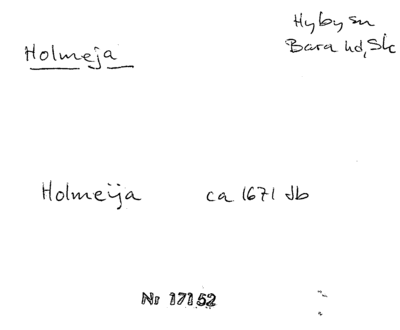 Hyby sn
Holmeja
Bara hd, Sk
Holmeija ca 1671 Jb
Nr 17152